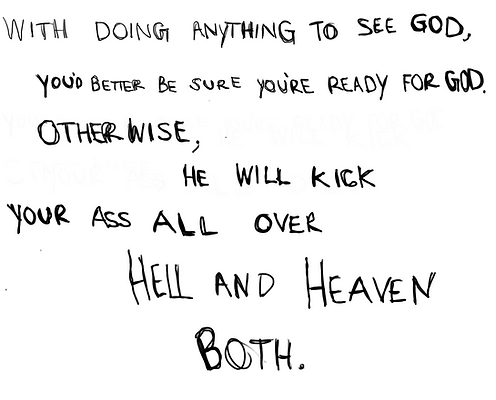 WITH DOING ANYTHING TO SEE GOD,
YOU'D BETTER BE SURE YOU'RE READY FOR GOD.
OTHERWISE,
HE WILL KICK
YOUR ASS ALL OVER
HELL AND HEAVEN
BOTH.